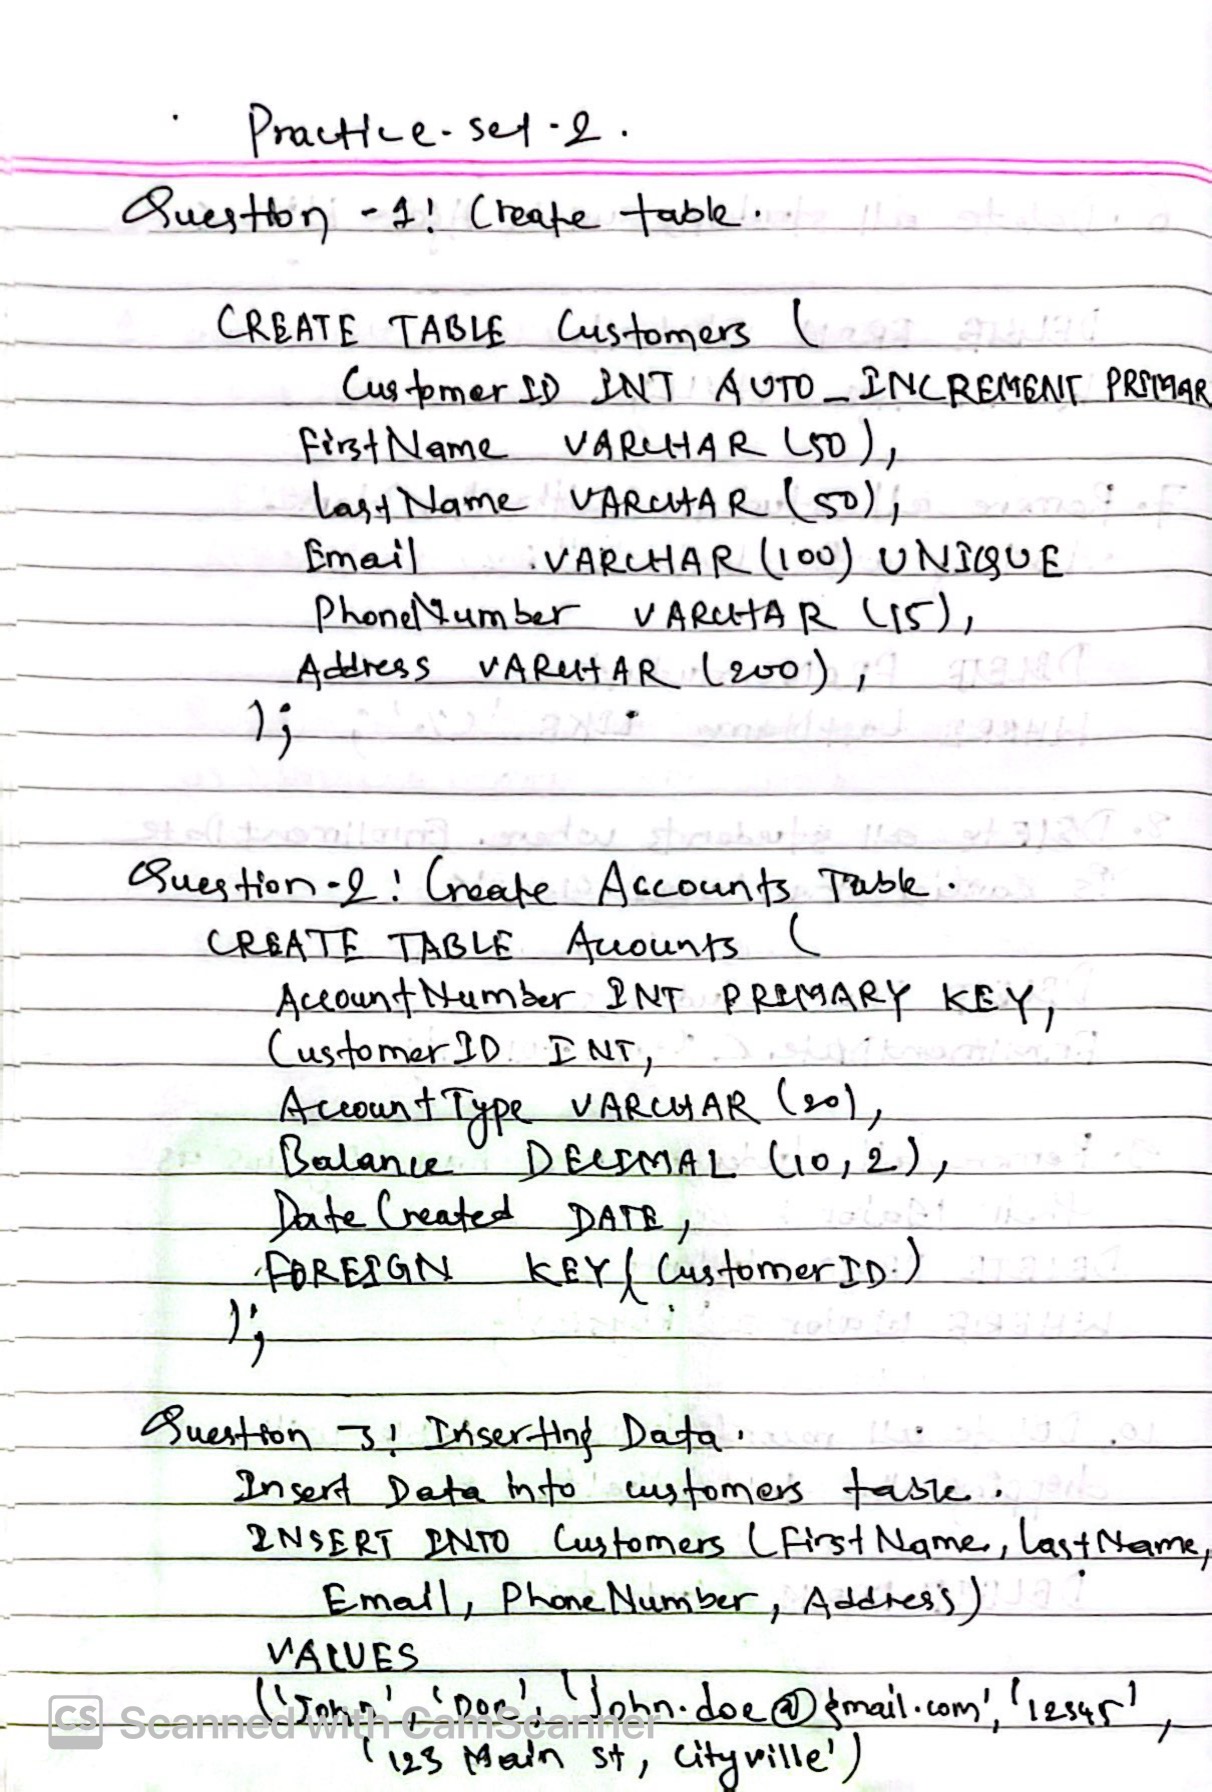 Practice-set-2.
Question -1! Create table.
CREATE TABLE Customers (
CustomerID INT AUTO_INCREMENT PRIMAR
FirstName VARCHAR (50),
LastName VARCHAR (50),
Email VARCHAR (100) UNIQUE
PhoneNumber VARCHAR (15),
Address VARCHAR (200),
);
Question-2! Create Accounts Table.
CREATE TABLE Accounts (
AccountNumber INT PRIMARY KEY,
CustomerID INT,
AccountType VARCHAR (20),
Balance DECIMAL (10,2),
DateCreated DATE,
FOREIGN KEY (CustomerID)
);
Question 3! Inserting Data.
Insert Data into customers table.
INSERT INTO Customers (FirstName, LastName,
Email, PhoneNumber, Address)
VALUES
('John', 'Doe', 'John.doe@gmail.com', '12345',
'123 Main St, Cityville')
CS Scanned with CamScanner